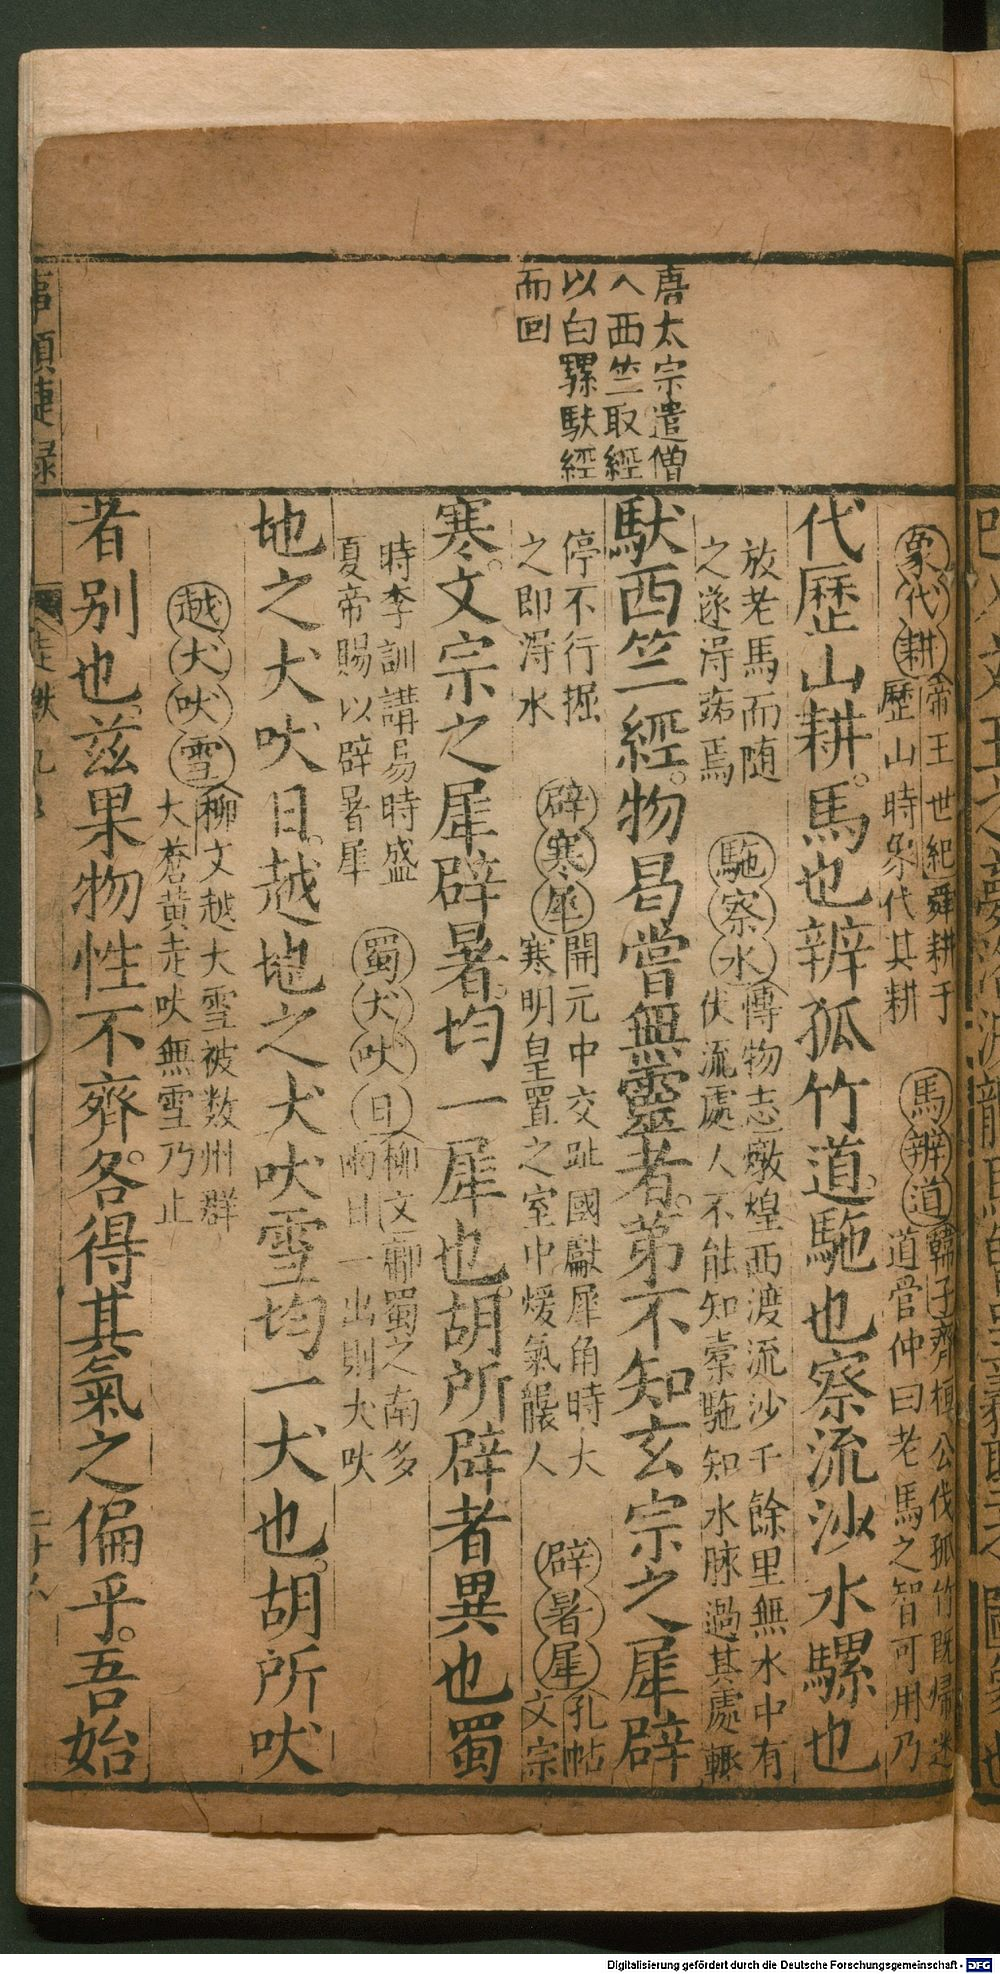 唐太宗遣僧
入西竺取經
以白騾馱經
而回
象代耕 帝王世紀舜耕于
歷山時象代其耕
馬辨道 韓子齊桓公伐孤竹既歸迷
道管仲曰老馬之智可用乃
代歷山耕。馬也辨狐竹道。駞也察流沙水騾也
放老馬而随
之遂淂路焉
駞察水 愽物志燉煌西渡流沙千餘里無水中有
伏流處人不能知槖駞知水脉過其處輙
馱西竺經。物曷嘗無靈者。苐不知玄宗之犀辟
停不行掘
之即淂水
辟寒犀 開元中交趾國獻犀角時大
寒明皇置之室中煖氣襲人
辟暑犀 孔帖
文宗
寒。文宗之犀辟暑。均一犀也。胡所辟者異也蜀
時李訓講易時盛
夏帝賜以辟暑犀
蜀犬吠日 柳文庸蜀之南多
雨日一出則犬吠
地之犬吠日。越地之犬吠雪均一犬也。胡所吠
越犬吠雪 柳文越大雪被数州群
犬蒼黄走吠無雪乃止
者别也。兹果物性不齊。各得其氣之偏乎。吾始
事類捷錄
Digitalisierung gefördert durch die Deutsche Forschungsgemeinschaft - DFG